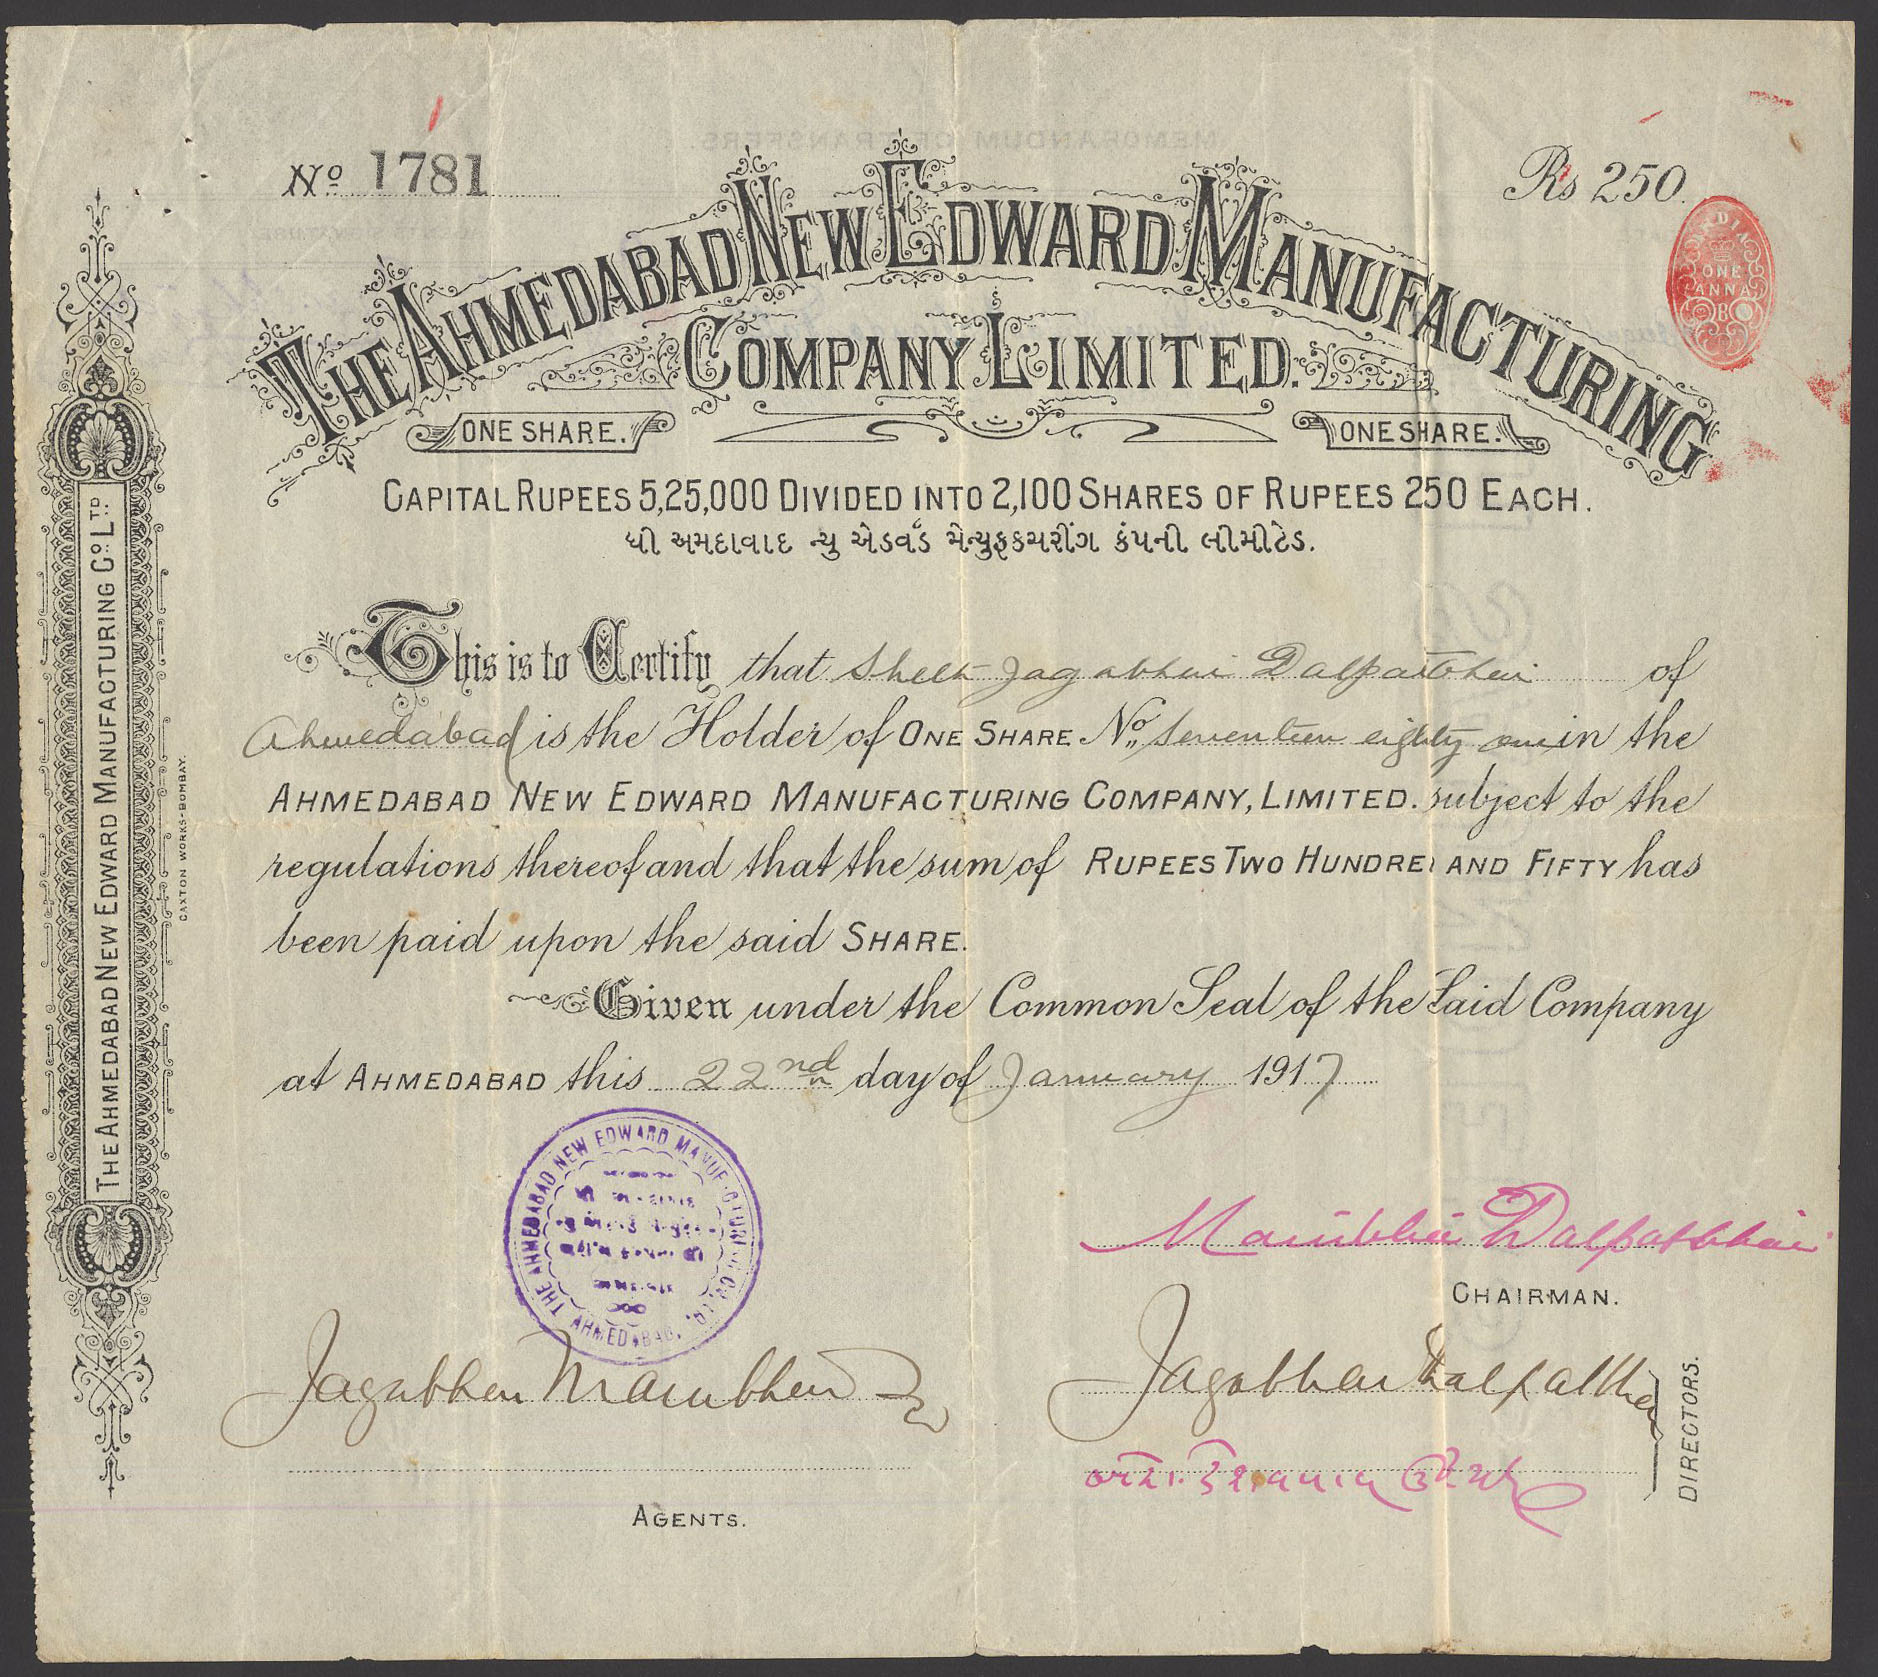 No 1781
Rs 250.
INDIA
ONE
ANNA
THE AHMEDABAD NEW EDWARD MANUFACTURING
COMPANY LIMITED.
ONE SHARE. ONE SHARE.
CAPITAL RUPEES 5,25,000 DIVIDED INTO 2,100 SHARES OF RUPEES 250 EACH.
ધી અમદાવાદ ન્યુ એડવર્ડ મેન્યુફકચરીંગ કંપની લીમીટેડ.
This is to Certify that Sheth Jagabhai Dalpatbhai of
Ahmedabad is the Holder of ONE SHARE No. Seventeen eighty one in the
AHMEDABAD NEW EDWARD MANUFACTURING COMPANY, LIMITED. subject to the
regulations thereof and that the sum of RUPEES TWO HUNDRED AND FIFTY has
been paid upon the said SHARE.
Given under the Common Seal of the Said Company
at AHMEDABAD this 22nd day of January 1917
THE AHMEDABAD NEW EDWARD MANUFACTURING CO. LTD.
AHMEDABAD.
Manibhai Dalpatbhai
CHAIRMAN.
Jagabhai Manibhai
Jagabhai Dalpatbhai
DIRECTORS.
AGENTS.
THE AHMEDABAD NEW EDWARD MANUFACTURING CO. LTD.
CAXTON WORKS-BOMBAY.